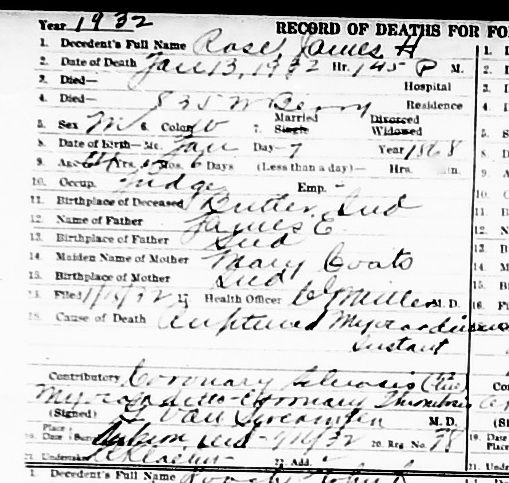 Year 1932
RECORD OF DEATHS FOR FO
1. Decedent's Full Name Rose, James H
2. Date of Death Jan 13, 1932 Hr. 1 45 P M.
3. Died— Hospital
4. Died— 835 W Berry Residence
5. Sex M 6. Color W 7. Married Single Divorced Widowed
8. Date of Birth—Mo. Jan Day— 7 Year 1868
9. Age 64 Yrs. Mos. 6 Days (Less than a day)— Hrs. in.
10. Occup. Judge Emp. -
11. Birthplace of Deceased Butler, Ind
12. Name of Father James E.
13. Birthplace of Father Ind
14. Maiden Name of Mother Mary Coats
15. Birthplace of Mother Ind
Filed 32 17 Health Officer Miller M. D.
18. Cause of Death Ruptured Myocardium
Instant
Contributory Coronary
Myocarditis - Coronary Thrombosis
(Signed) Van M. D.
Place
19. Date Auburn Ind 32 20. Reg No. 38
21. Undertaker 22. Add
1. Decedent's Full Name John